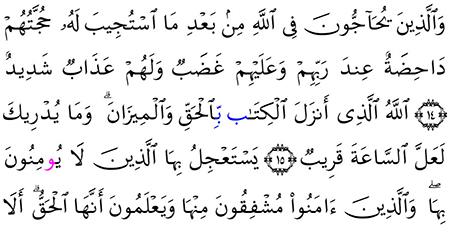 وَٱلَّذِينَ يُحَآجُّونَ فِى ٱللَّهِ مِنۢ بَعْدِ مَا ٱسْتُجِيبَ لَهُۥ حُجَّتُهُمْ
دَاحِضَةٌ عِندَ رَبِّهِمْ وَعَلَيْهِمْ غَضَبٌ وَلَهُمْ عَذَابٌ شَدِيدٌ
﴿١٤﴾ ٱللَّهُ ٱلَّذِى أَنزَلَ ٱلْكِتَـٰب بِّٱلْحَقِّ وَٱلْمِيزَانَ ۗ وَمَا يُدْرِيكَ
لَعَلَّ ٱلسَّاعَةَ قَرِيبٌ ﴿١٥﴾ يَسْتَعْجِلُ بِهَا ٱلَّذِينَ لَا يُومِنُونَ
بِهَا ۖ وَٱلَّذِينَ ءَامَنُوا۟ مُشْفِقُونَ مِنْهَا وَيَعْلَمُونَ أَنَّهَا ٱلْحَقُّ ۗ أَلَا